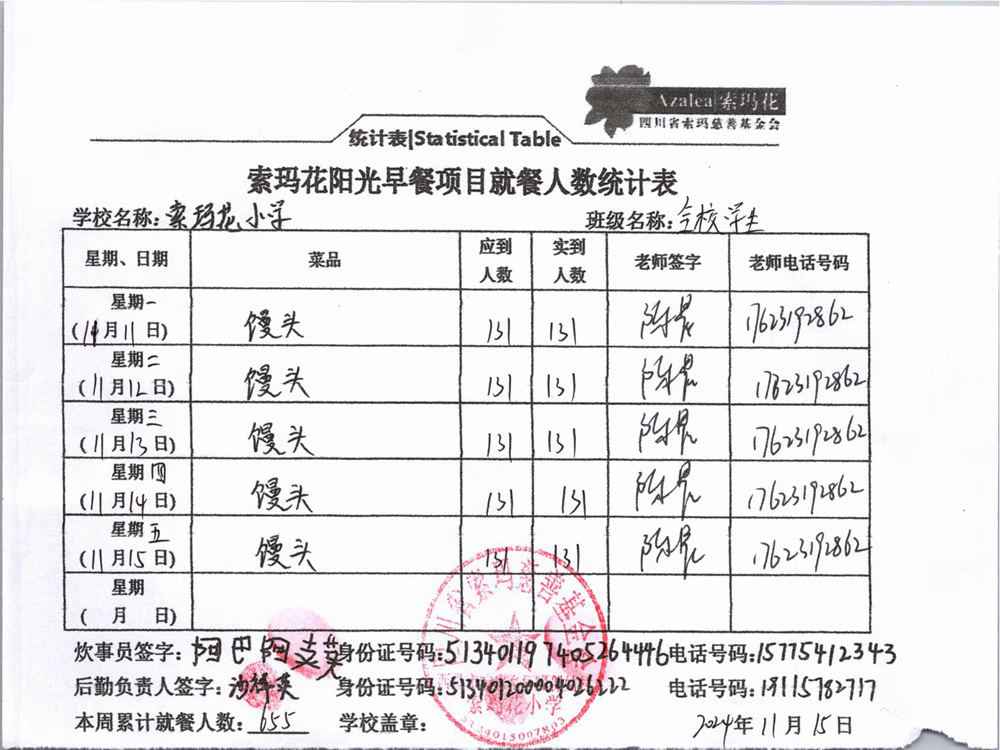 Azalea 索玛花
四川省索玛慈善基金会
统计表|Statistical Table
索玛花阳光早餐项目就餐人数统计表
学校名称:索玛花小学 班级名称:全校学生
星期、日期 菜品 应到人数 实到人数 老师签字 老师电话号码
星期一 (11月11日) 馒头 131 131 陈 17623192862
星期二 (11月12日) 馒头 131 131 陈 17623192862
星期三 (11月13日) 馒头 131 131 陈 17623192862
星期四 (11月14日) 馒头 131 131 陈 17623192862
星期五 (11月15日) 馒头 131 131 陈 17623192862
星期 ( 月 日)
炊事员签字:阿巴阿 身份证号码:513401197405264446 电话号码:15775412343
后勤负责人签字: 身份证号码:513401200004026222 电话号码:18115782717
本周累计就餐人数:655 学校盖章: 2024年11月15日
川省索玛慈善基金会
索玛花小学